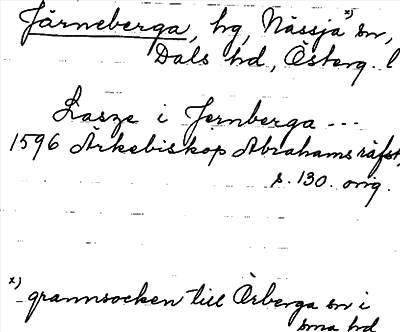 Järneberga, hg, Nässja x) sn,
Dals hd, Österg. l
Lasze i Jernberga ---
1596 Ärkebiskop Abrahams räfst,
s. 130. orig.
x) grannsocken till Örberga sn i
sma hd